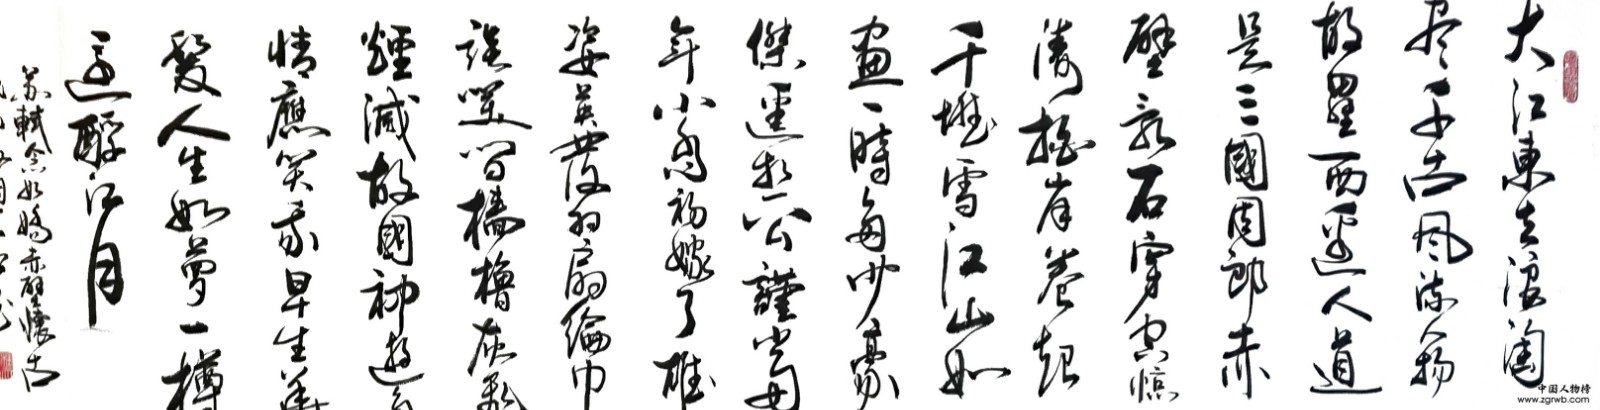 大江東去浪淘
尽千古風流人物
故壘西邊人道
是三國周郎赤
壁乱石穿空惊
濤拍岸卷起
千堆雪江山如
畫一時多少豪
傑遥想公謹當
年小喬初嫁了雄
姿英發羽扇綸巾
談笑間檣櫓灰飛
煙滅故國神遊多
情應笑我早生華
髮人生如夢一樽
還酹江月
苏軾念奴嬌赤壁懷古
中国人物榜
www.zgrwb.com